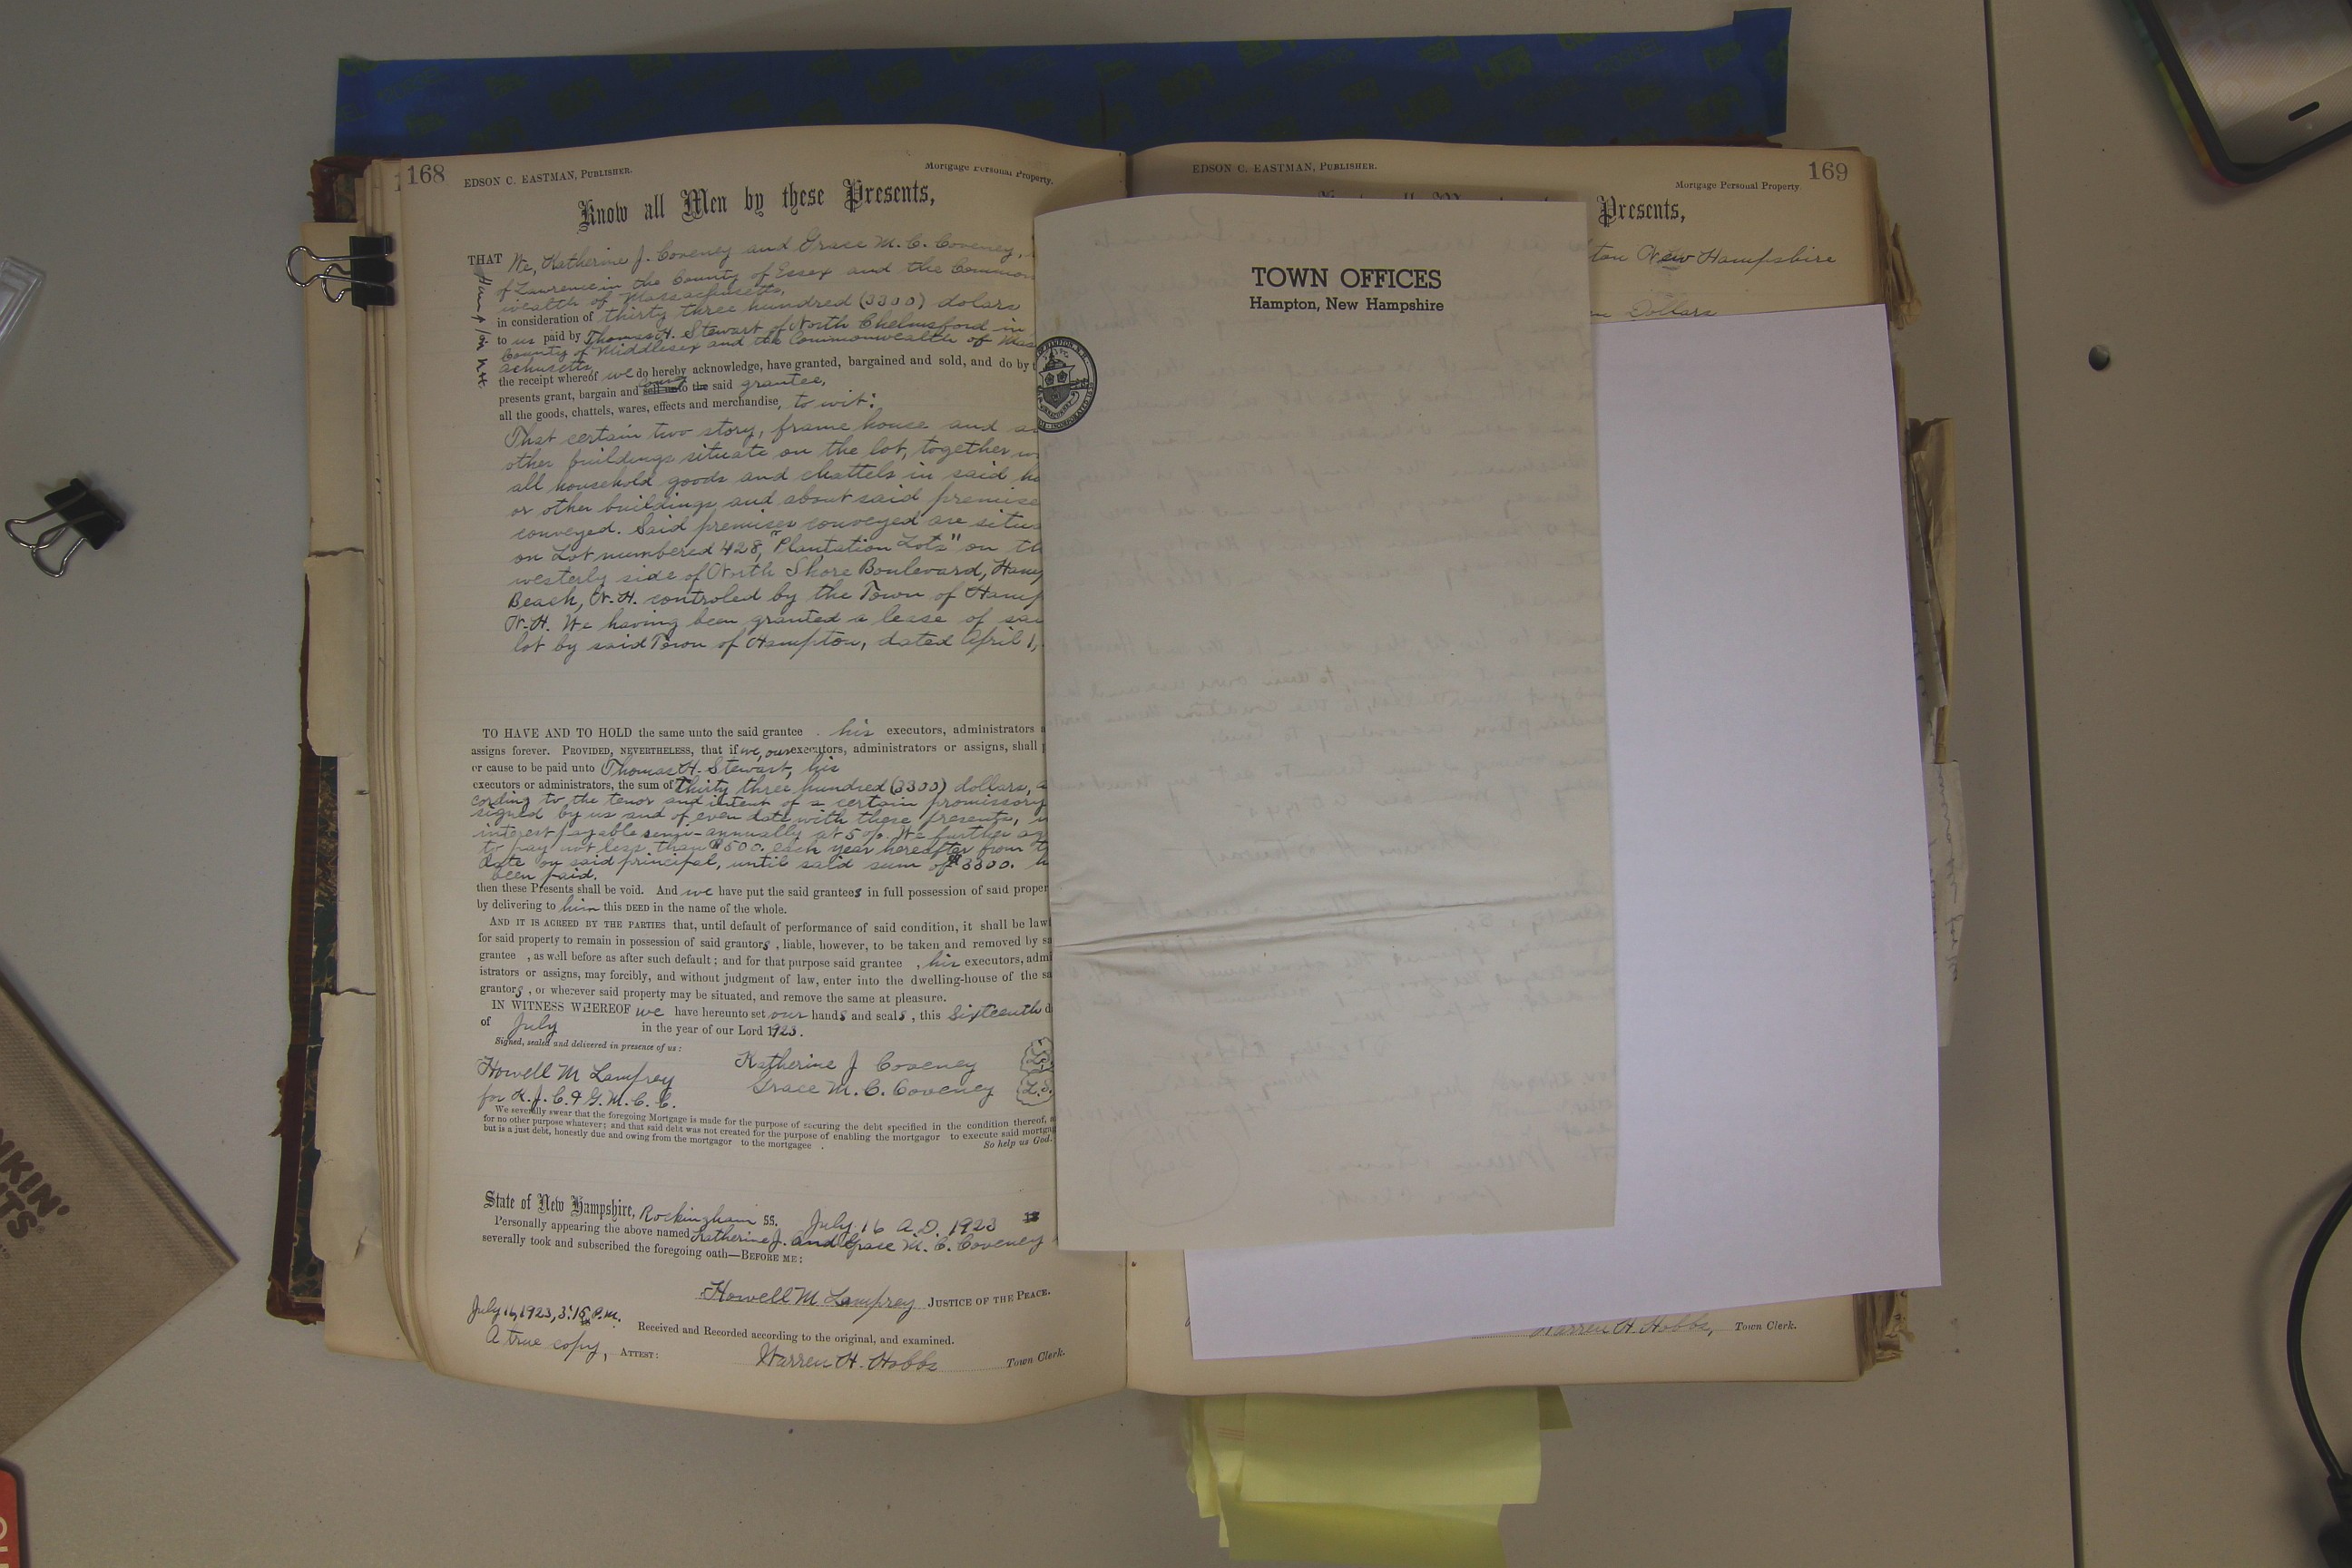 168
EDSON C. EASTMAN, PUBLISHER.
Mortgage Personal Property.
Know all Men by these Presents,
THAT We, Katherine J. Coveney and Grace M. C. Coveney,
of Lawrence in the County of Essex and the Common
wealth of Massachusetts,
in consideration of thirty three hundred (3300) dolars
to us paid by Thomas H. Stewart of North Chelmsford in
County of Middlesex and the Commonwealth of Mass
achusetts,
the receipt whereof we do hereby acknowledge, have granted, bargained and sold, and do by
presents grant, bargain and sell unto the said grantee,
all the goods, chattels, wares, effects and merchandise, to wit:
That certain two story, frame house and
other buildings situate on the lot, together
all household goods and chattels in said
or other buildings and about said premise
conveyed. Said premises conveyed are situa
on Lot numbered 428, "Plantation Lots" on
westerly side of North Shore Boulevard, Hamp
Beach, N.H. controled by the Town of Hamp
N.H. We having been granted a lease of
lot by said Town of Hampton, dated April 1,
TO HAVE AND TO HOLD the same unto the said grantee . his executors, administrators
assigns forever. PROVIDED, NEVERTHELESS, that if we, our executors, administrators or assigns, shall
or cause to be paid unto Thomas H. Stewart, his
executors or administrators, the sum of thirty three hundred (3300) dollars,
cording to the tenor and intent of a certain promissory
signed by us and of even date with these presents,
interest payable semi-annually at 5%. We further
to pay not less than $500. each year hereafter from
date on said principal, until said sum of $3300.
been paid.
then these Presents shall be void. And we have put the said grantees in full possession of said proper
by delivering to him this DEED in the name of the whole.
AND IT IS AGREED BY THE PARTIES that, until default of performance of said condition, it shall be law
for said property to remain in possession of said grantors, liable, however, to be taken and removed by
grantee , as well before as after such default; and for that purpose said grantee , his executors, admi
istrators or assigns, may forcibly, and without judgment of law, enter into the dwelling-house of the
grantors, or wherever said property may be situated, and remove the same at pleasure.
IN WITNESS WHEREOF we have hereunto set our hands and seals, this Sixteenth
of July in the year of our Lord 1923.
Signed, sealed and delivered in presence of us:
Howell M Lamprey Katherine J Coveney L.S.
for K.J.C. & G.M.C.C. Grace M. C. Coveney L.S.
We severally swear that the foregoing Mortgage is made for the purpose of securing the debt specified in the condition thereof,
for no other purpose whatever; and that said debt was not created for the purpose of enabling the mortgagor to execute said mortgag
but is a just debt, honestly due and owing from the mortgagor to the mortgagee . So help us God.
State of New Hampshire, Rockingham SS. July 16 A.D. 1923
Personally appearing the above named Katherine J. and Grace M. C. Coveney
severally took and subscribed the foregoing oath—BEFORE ME:
Howell M Lamprey JUSTICE OF THE PEACE.
July 16, 1923, 3:15 P.M.
Received and Recorded according to the original, and examined.
A true copy, ATTEST: Warren H. Hobbs Town Clerk.
EDSON C. EASTMAN, PUBLISHER.
169
Mortgage Personal Property.
Presents,
ton New Hampshire
Dollars
TOWN OFFICES
Hampton, New Hampshire
Warren H. Hobbs, Town Clerk.